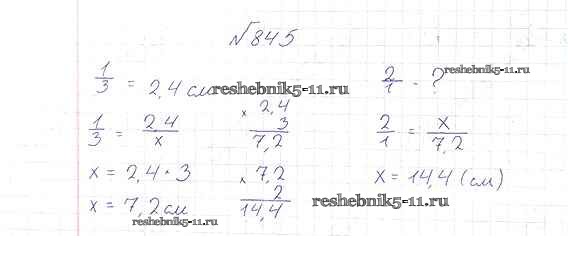 №845
1/3 = 2,4 см
reshebnik5-11.ru
2/1 - ?
reshebnik5-11.ru
1/3 = 2,4/x
x 2,4
3
7,2
2/1 = x/7,2
x = 2,4 · 3
x 7,2
2
14,4
x = 14,4 (см)
x = 7,2 см
reshebnik5-11.ru
reshebnik5-11.ru